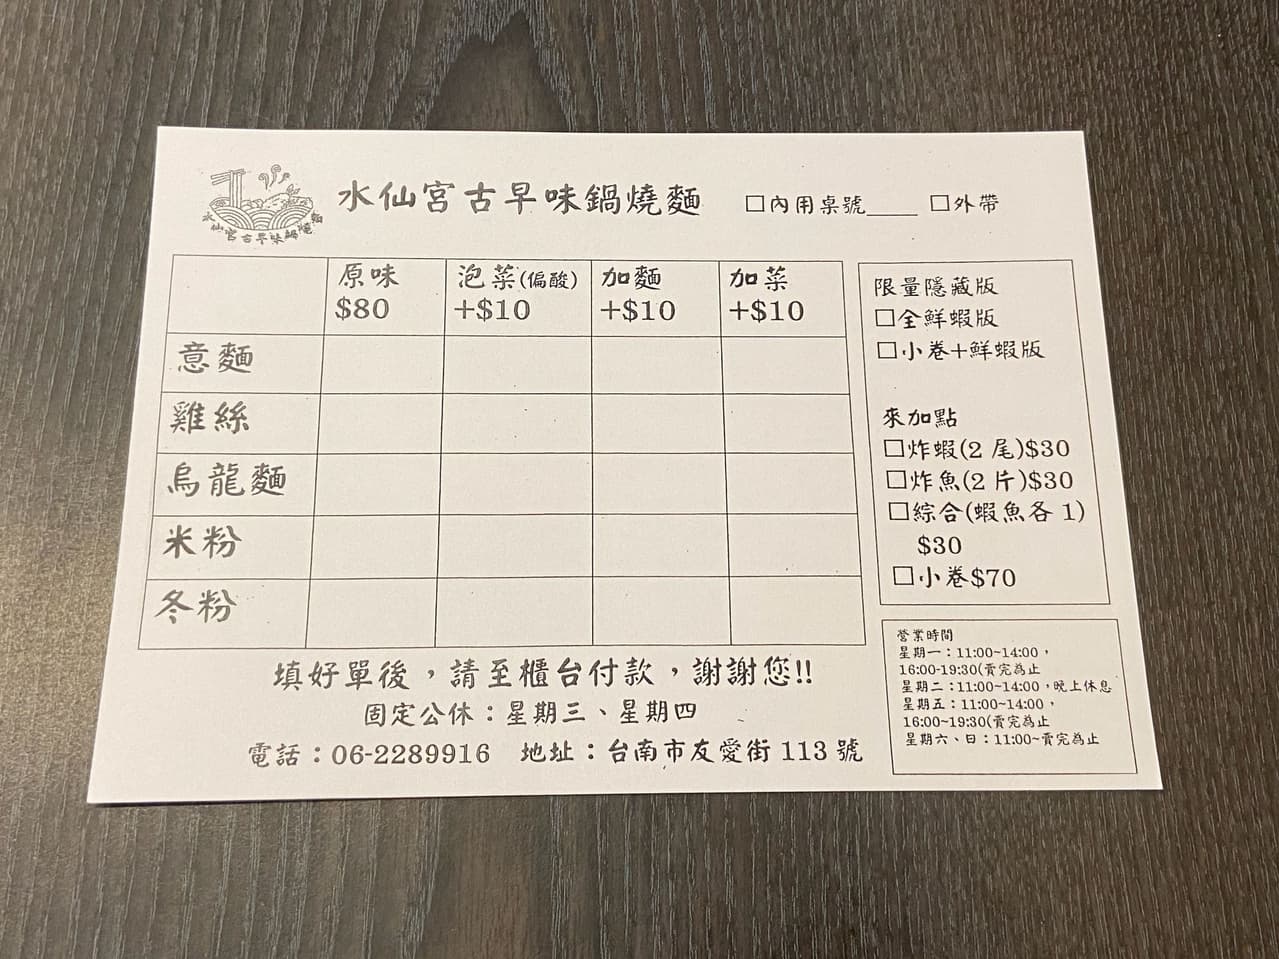 水仙宮古早味鍋燒麵
水仙宮古早味鍋燒麵 □內用桌號____ □外帶
原味 泡菜(偏酸) 加麵 加菜
$80 +$10 +$10 +$10
意麵
雞絲
烏龍麵
米粉
冬粉
限量隱藏版
□全鮮蝦版
□小卷+鮮蝦版
來加點
□炸蝦(2 尾)$30
□炸魚(2 片)$30
□綜合(蝦魚各 1)
$30
□小卷$70
填好單後，請至櫃台付款，謝謝您!!
固定公休：星期三、星期四
電話：06-2289916 地址：台南市友愛街 113 號
營業時間
星期一：11:00~14:00，
16:00-19:30(賣完為止
星期二：11:00~14:00，晚上休息
星期五：11:00~14:00，
16:00~19:30(賣完為止
星期六、日：11:00~賣完為止